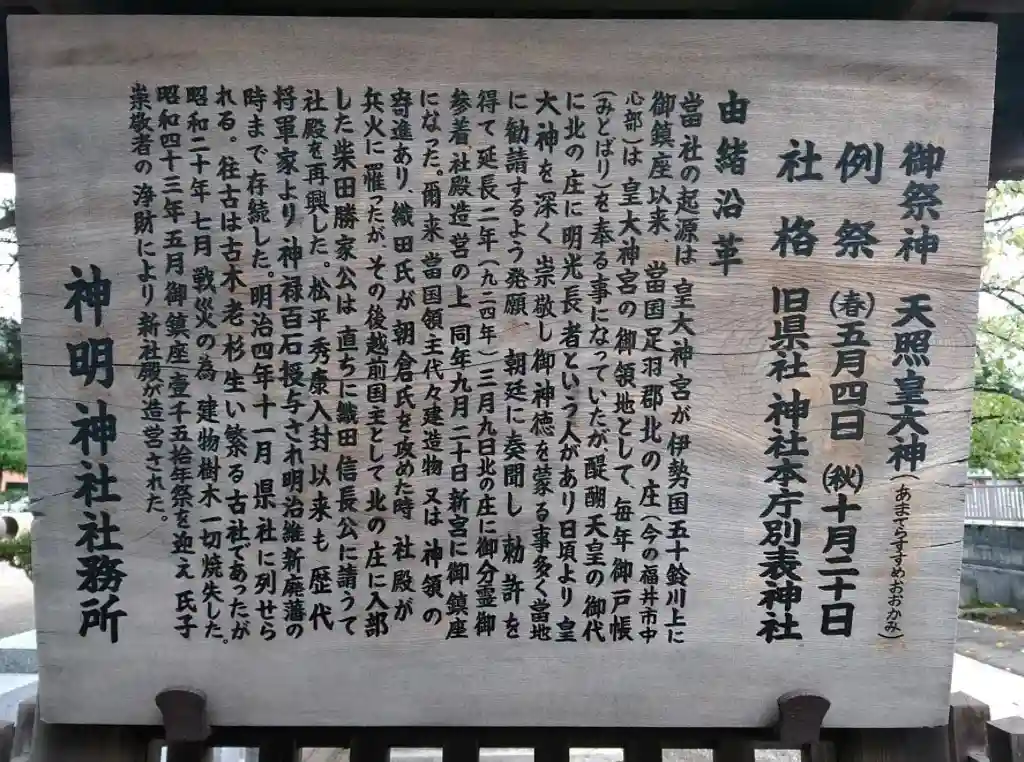 御祭神 天照皇大神(あまてらすすめおおかみ)
例祭 (春)五月四日 (秋)十月二十日
社格 旧県社 神社本庁別表神社
由緒沿革
當社の起源は 皇大神宮が伊勢国五十鈴川上に
御鎮座以来、當国足羽郡北の庄(今の福井市中
心部)は 皇大神宮の御領地として、毎年御戸帳
(みとばり)を奉る事になっていたが、醍醐天皇の御代
に北の庄に明光長者という人があり日頃より 皇
大神を深く崇敬し御神徳を蒙る事多く當地
に勧請するよう発願、朝廷に奏聞し 勅許を
得て延長二年(九二四年)三月九日北の庄に御分霊御
参着、社殿造営の上 同年九月二十日新宮に御鎮座
になった。爾来 當国領主代々建造物 又は 神領の
寄進あり、織田氏が朝倉氏を攻めた時 社殿が
兵火に罹ったが、その後越前国主として北の庄に入部
した柴田勝家公は 直ちに織田信長公に請うて
社殿を再興した。松平秀康入封以来も 歴代
将軍家より 神禄百石授与され明治維新廃藩の
時まで存続した。明治四年十一月 県社に列せら
れる。往古は古木老杉生い繁る古社であったが
昭和二十年七月 戦災の為 建物樹木一切焼失した。
昭和四十三年五月御鎮座壹千五拾年祭を迎え 氏子
崇敬者の浄財により新社殿が造営された。
神明神社社務所